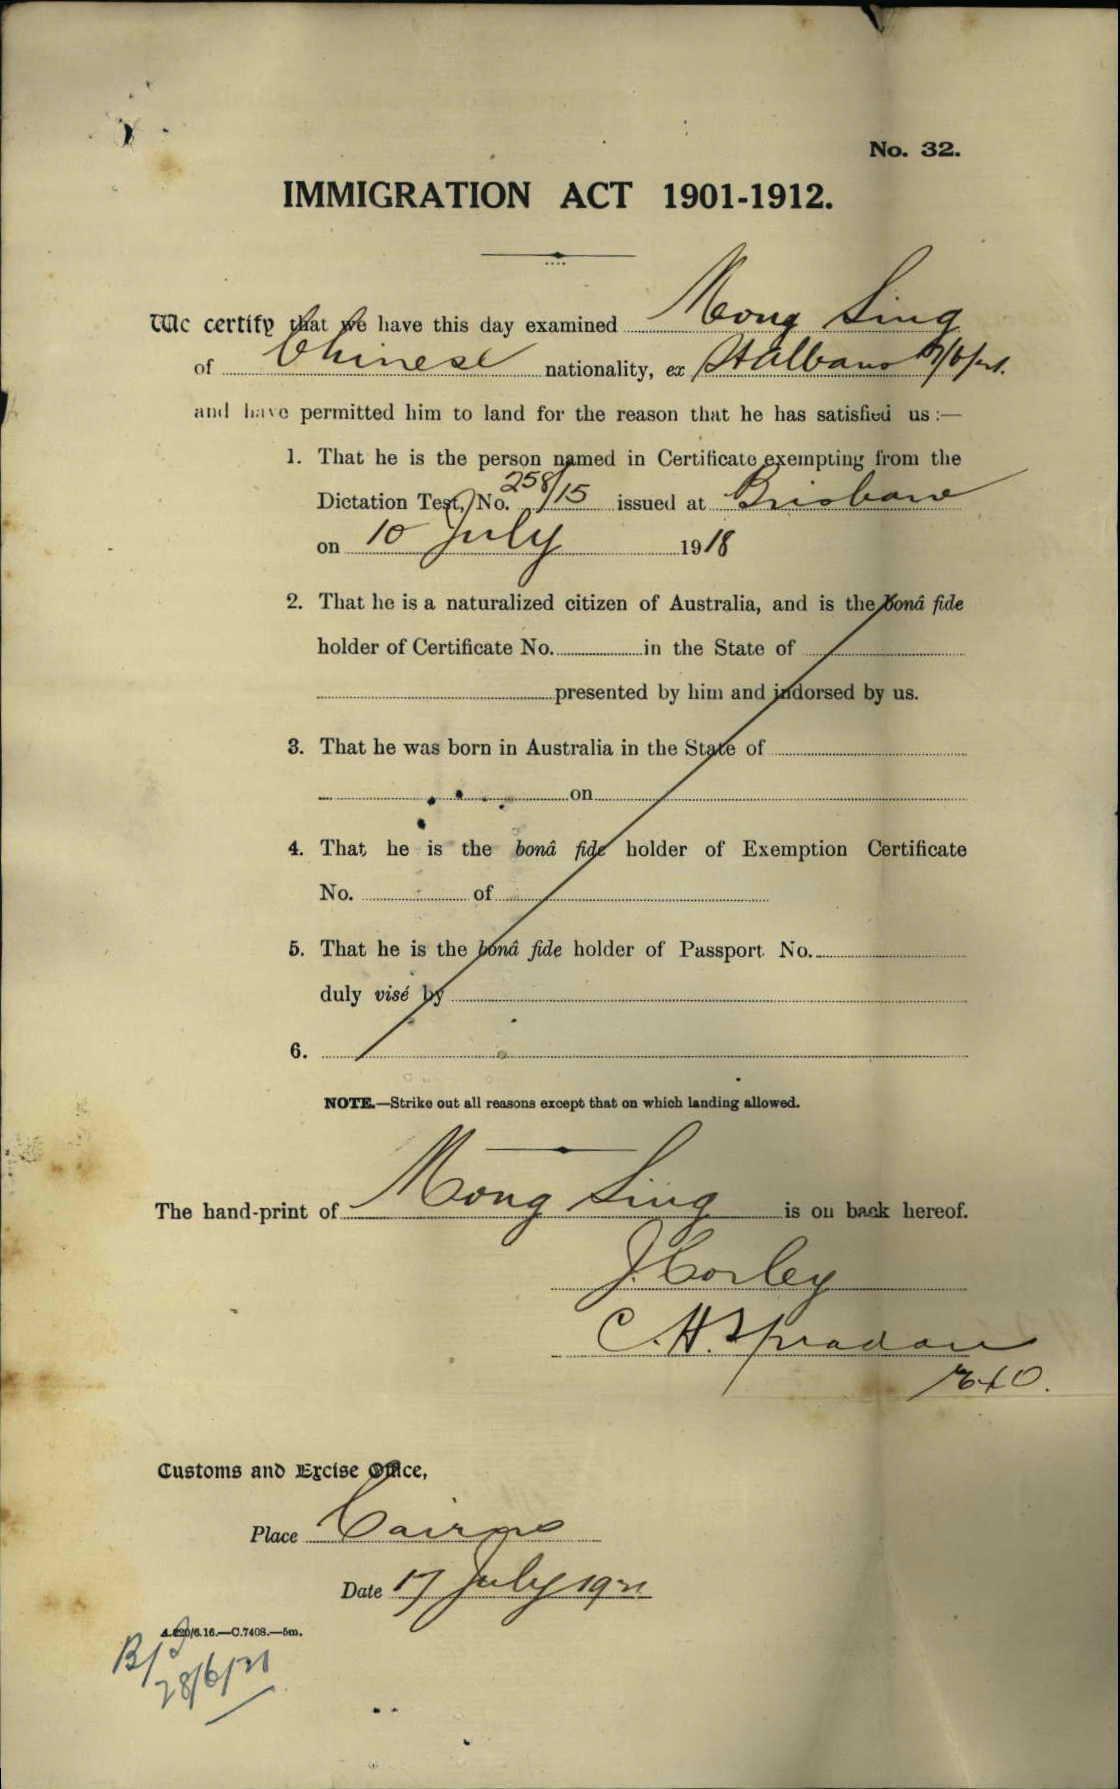 No. 32.
IMMIGRATION ACT 1901-1912.
We certify that we have this day examined Mong Sing
of Chinese nationality, ex St Albans 17/6/21.
and have permitted him to land for the reason that he has satisfied us :—
1. That he is the person named in Certificate exempting from the
Dictation Test, No. 258/15 issued at Brisbane
on 10 July 1918
2. That he is a naturalized citizen of Australia, and is the bonâ fide
holder of Certificate No. in the State of
presented by him and indorsed by us.
3. That he was born in Australia in the State of
on
4. That he is the bonâ fide holder of Exemption Certificate
No. of
5. That he is the bonâ fide holder of Passport No.
duly visé by
6.
NOTE.—Strike out all reasons except that on which landing allowed.
The hand-print of Mong Sing is on back hereof.
J. Corley
C. H. Spradau
Customs and Excise Office,
Place Cairns
Date 17 July 1921
A.220/6.16.—C.7408.—5m.
28/6/21